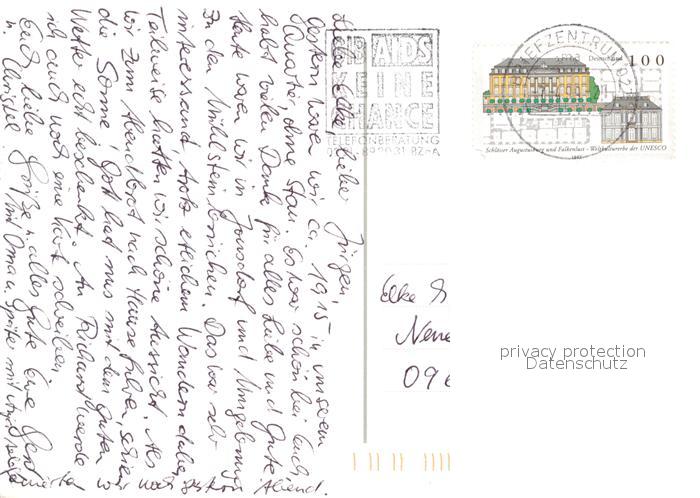 Liebe Elke, lieber Jürgen,
Gestern wäre wir ca. 19,15 in unserem
Quartier, ohne Stau. Es war schön bei Euch
habt vielen Dank für alles Liebe und Gute.
Heute waren wir in Jonsdorf und Umgebung
In den Mühlsteinbrüchen. Das war sehr
interessand, trotz etlichem Wandern dabei,
Teilweise hatten wir schöne Aussicht. Als
wir zum Abendbrot nach Hause fuhren, schien
die Sonne, Gott hat uns mit dem guten
Wetter echt beschenkt. An Richard werde
ich auch noch eine Karte schreiben
Euch liebe Grüße u. alles Gute Eure
u. Christel.
GIB AIDS
KEINE
CHANCE
TELEFONBERATUNG
BZgA
BRIEFZENTRUM 02
Deutschland 100
Schlösser Augustusburg und Falkenlust - Weltkulturerbe der UNESCO
Elke
096
privacy protection
Datenschutz